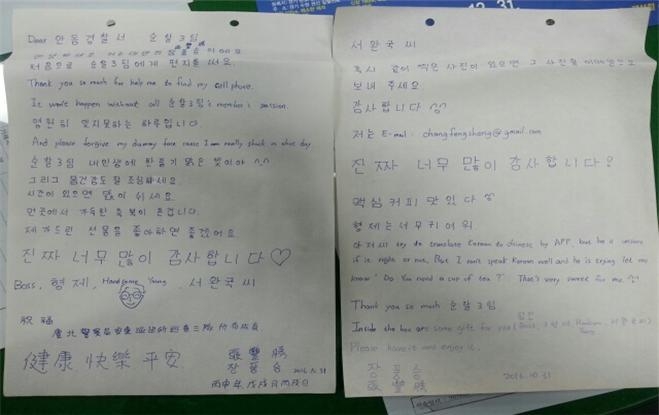 12. 31.
Dear 안동경찰서 순찰3팀
처음으로 순찰3팀에게 편지를 써요.
Thank you so much for help me to find my cell phone.
It won't happen without all 순찰3팀's member's
영원히 잊지못하는 하루입니다.
And please forgive my dummy face cause I am really shock in that day
순찰3팀 내인생에 한줄기 맑은 빛이야 ^^
그리고 몸건강도 잘 조심하세요.
시간이 있으면 많이 쉬세요.
먼곳에서 가득한 축복이 온겁니다.
제가드린 선물을 좋아하면 좋겠어요
진짜 너무 많이 감사합니다♡
Boss, 형제, Handsome Young, 서완국씨
祝福
健康 快樂 平安
張豐勝
장풍승 2016.10.31
丙申年戊戌月丙戌日
서완국씨
혹시 같이 찍은 사진이 있으면 그 사진을 이메일으로
보내 주세요.
감사합니다 ^^
저는 E-mail : changfengsheng@gmail.com
진짜 너무 많이 감사합니다!
맥심커피 맛있다 ^^
형제는 너무 귀여워
아저씨 try to translate Korean to chinese by APP, but he is unsure
if is right or not. But I can't speak Korean well and he is trying let me
know "Do You need a cup of tea?" That's very sweet for me. ^^
Thank you so much 순찰3팀
Inside the box are some gift for you
Please have it and enjoy it.
장풍승
張豐勝 2016.10.31